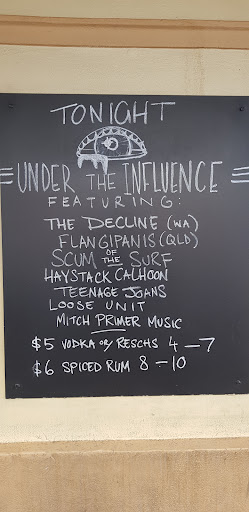 TONIGHT
UNDER THE INFLUENCE
FEATURING:
THE DECLINE (WA)
FLANGIPANIS (QLD)
SCUM OF THE SURF
HAYSTACK CALHOON
TEENAGE JOANS
LOOSE UNIT
MITCH PRIMER MUSIC
$5 VODKA OR RESCHS 4 – 7
$6 SPICED RUM 8 – 10